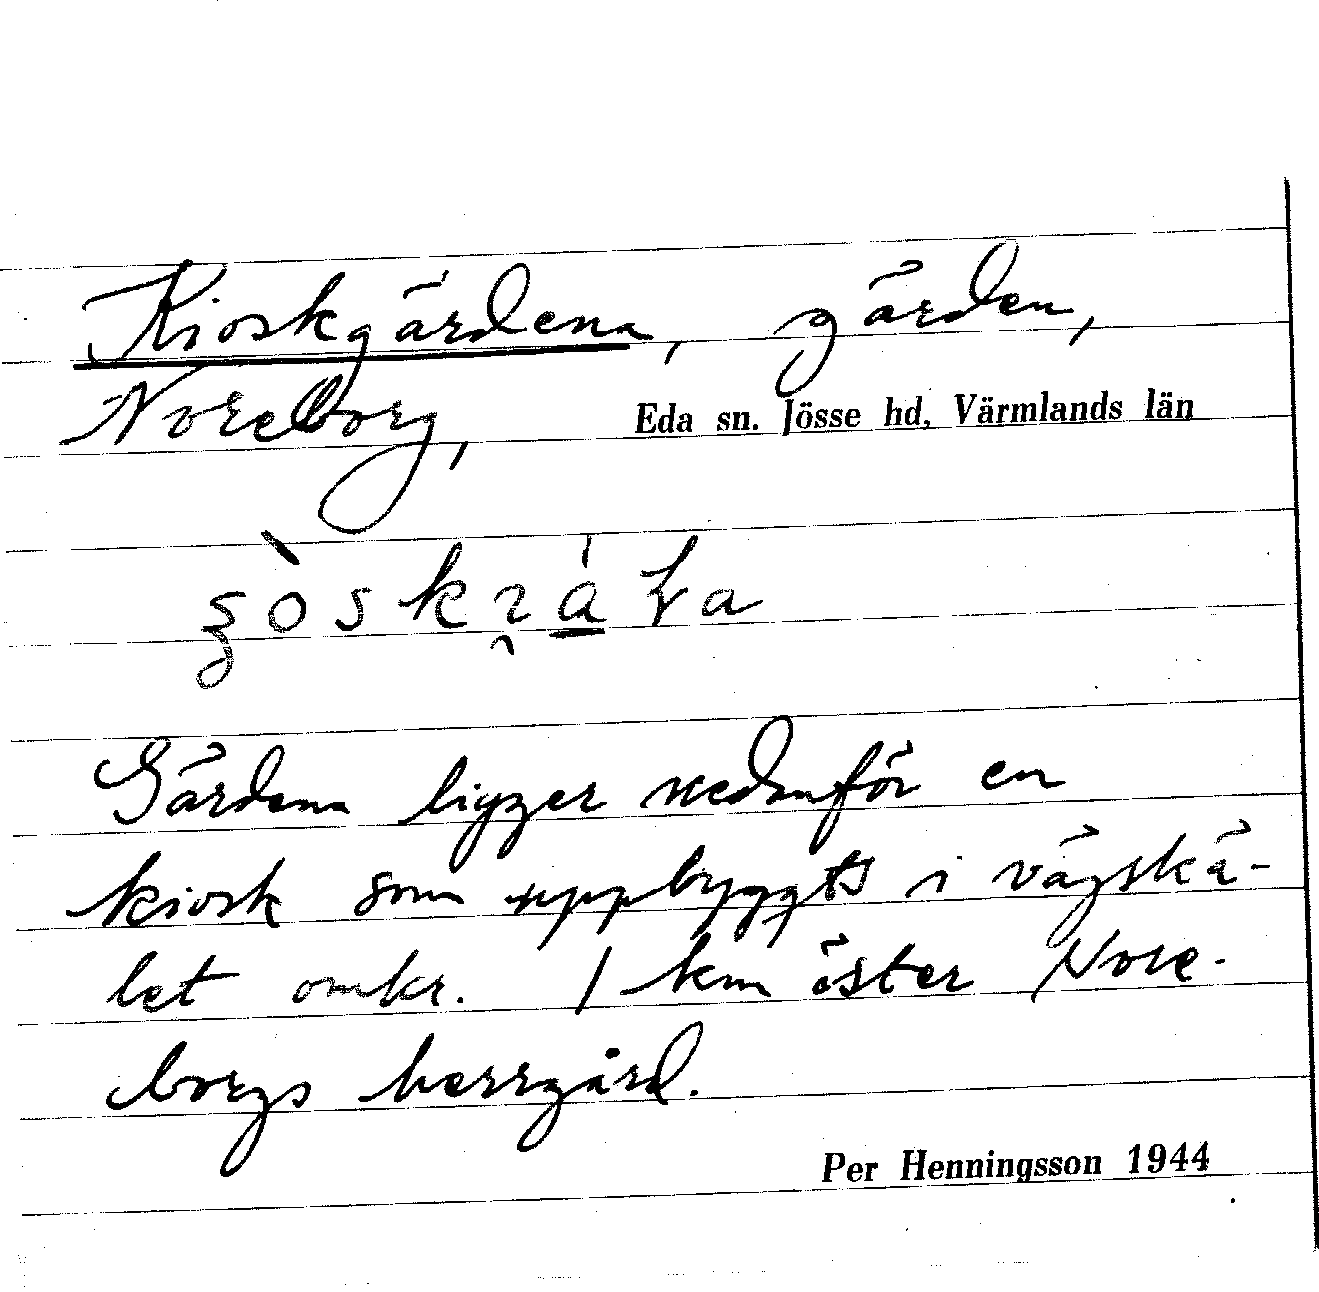 Kioskgärdena, gärden,
Noreborg, Eda sn. Jösse hd, Värmlands län
Gärdena ligger nedanför en
kiosk som uppbyggts i vägskä-
let omkr. 1 km öster Nore-
borgs herrgård.
Per Henningsson 1944